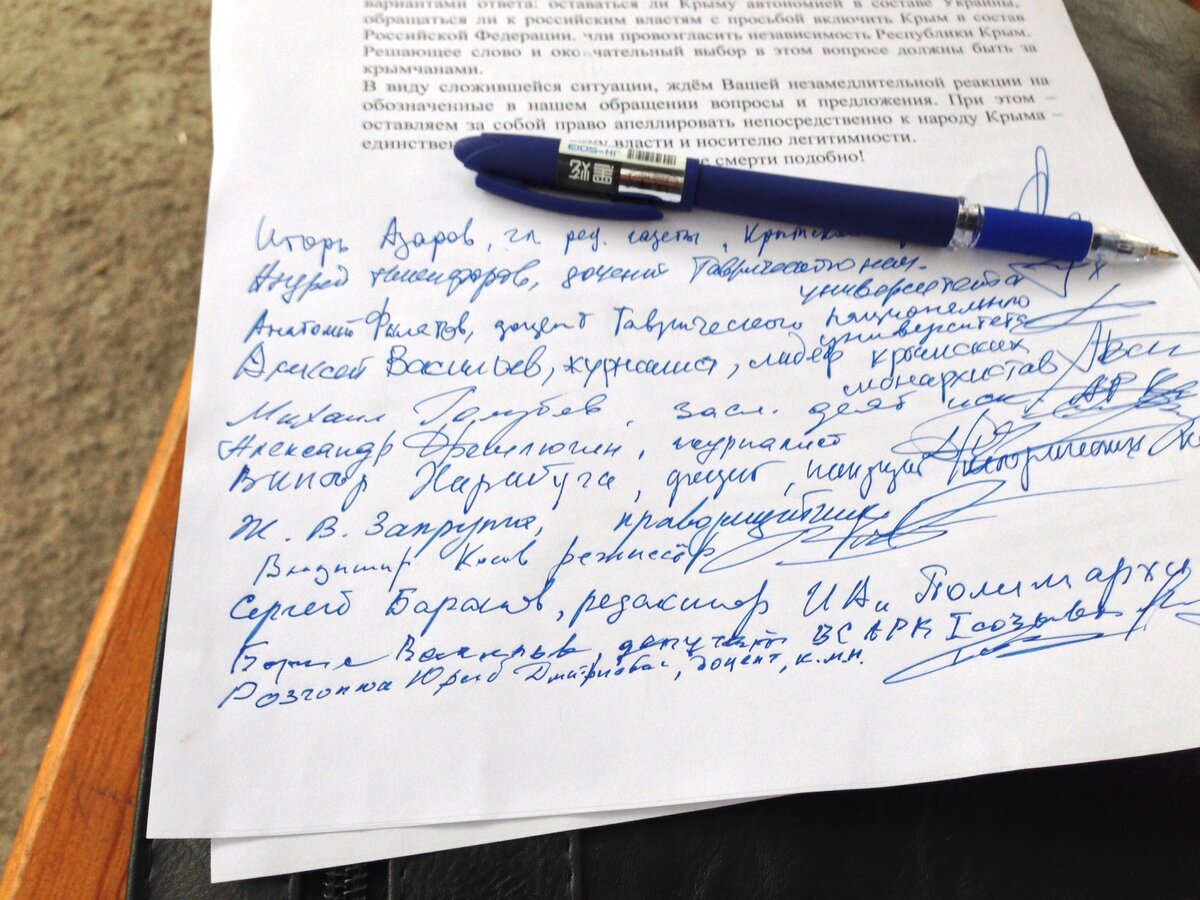 вариантами ответа: оставаться ли Крыму автономией в составе Украины,
обращаться ли к российским властям с просьбой включить Крым в состав
Российской Федерации, или провозгласить независимость Республики Крым.
Решающее слово и окончательный выбор в этом вопросе должны быть за
крымчанами.
В виду сложившейся ситуации, ждём Вашей незамедлительной реакции на
обозначенные в нашем обращении вопросы и предложения. При этом –
оставляем за собой право апеллировать непосредственно к народу Крыма –
единствен власти и носителю легитимности.
смерти подобно!
JH-5013
Игорь Азаров, гл. ред. газеты,
Андрей Никифоров, доцент Таврического нац.
университета
Анатолий Филатов, доцент Таврического национального
университета
Алексей Васильев, журналист, лидер крымских
монархистов
Михаил Голубев, засл. деят. иск.
Александр журналист
Виктор Харабуга, доцент, кандидат исторических
Ж. В. Запрутя, правозащитник
Владимир Косов режиссёр
Сергей Баранов, редактор ИА "Полимарх
Васильев, депутат ВС АРК I созыва
Юрий Дмитриевич, доцент, к.м.н.